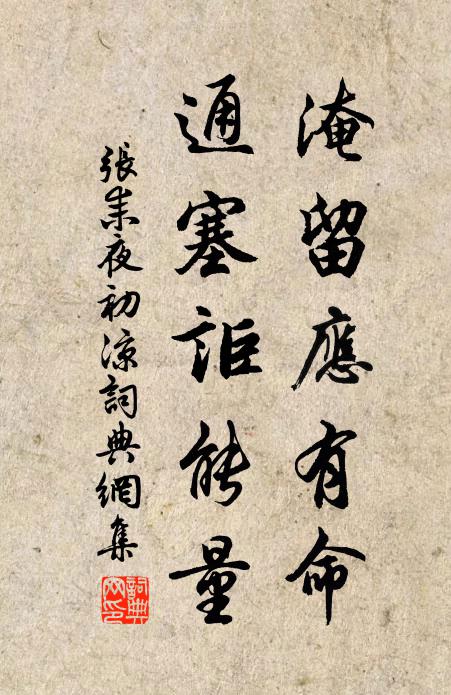 淹留應有命
通塞詎能量
張耒夜初涼詞典網集
詞典网印